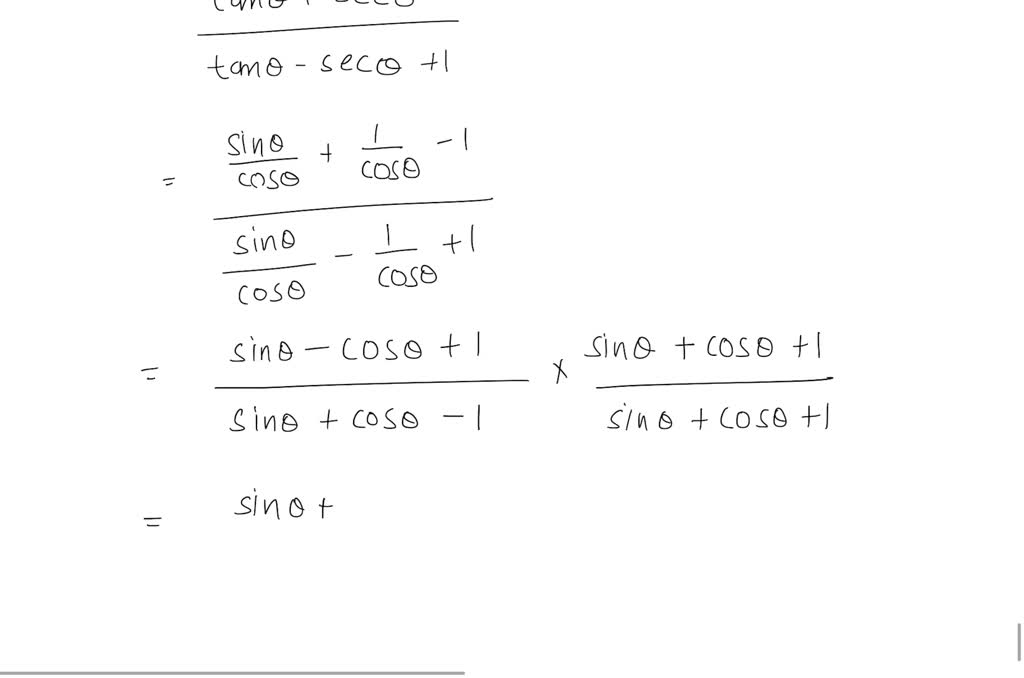 tanθ - secθ +1
= sinθ/cosθ + 1/cosθ -1
sinθ/cosθ - 1/cosθ +1
= sinθ - cosθ + 1 / sinθ + cosθ - 1 × sinθ + cosθ +1 / sinθ + cosθ +1
= sinθ +